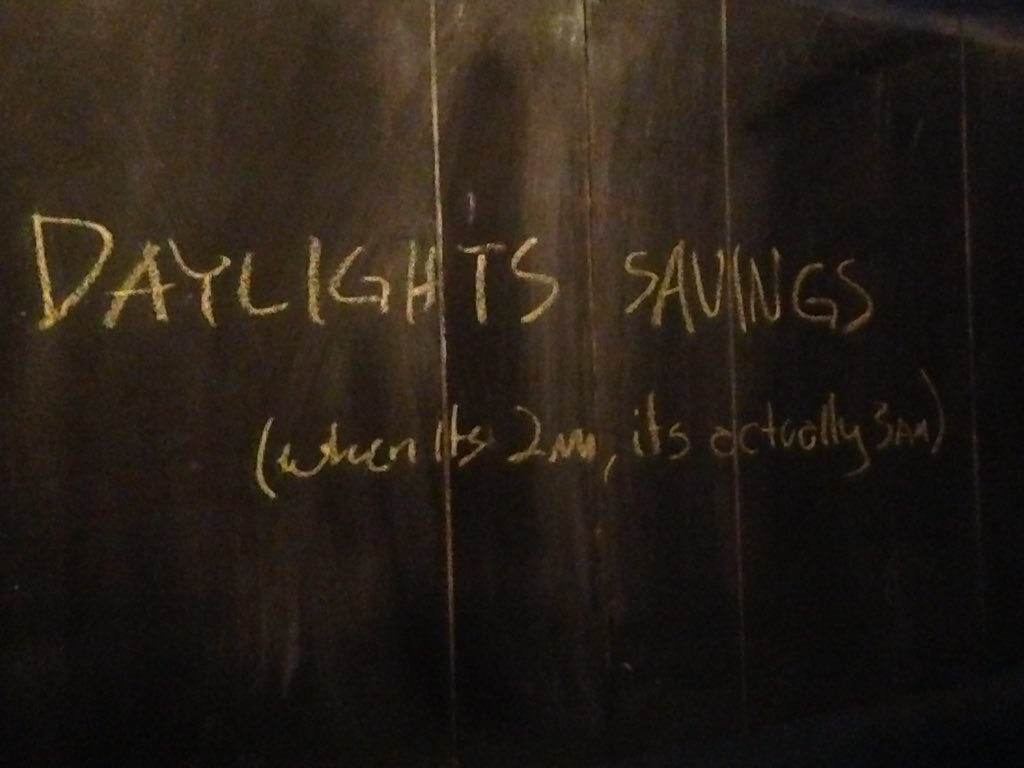 DAYLIGHTS SAVINGS
(when its 2AM, its actually 3AM)